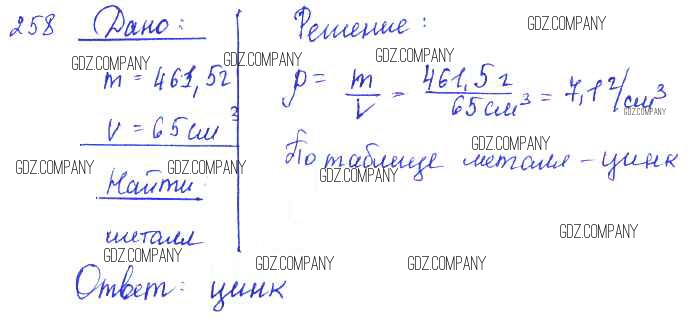 258 Дано:
GDZ.COMPANY
GDZ.COMPANY
m = 461,5г
GDZ.COMPANY
V = 65 см³
GDZ.COMPANY
GDZ.COMPANY
Найти
металл
GDZ.COMPANY
Решение:
GDZ.COMPANY
GDZ.COMPANY
ρ = m/V = 461,5 г/65 см³ = 7,1 г/см³
GDZ.COMPANY
GDZ.COMPANY
GDZ.COMPANY
По таблице металл – цинк
GDZ.COMPANY
GDZ.COMPANY
GDZ.COMPANY
GDZ.COMPANY
Ответ: цинк